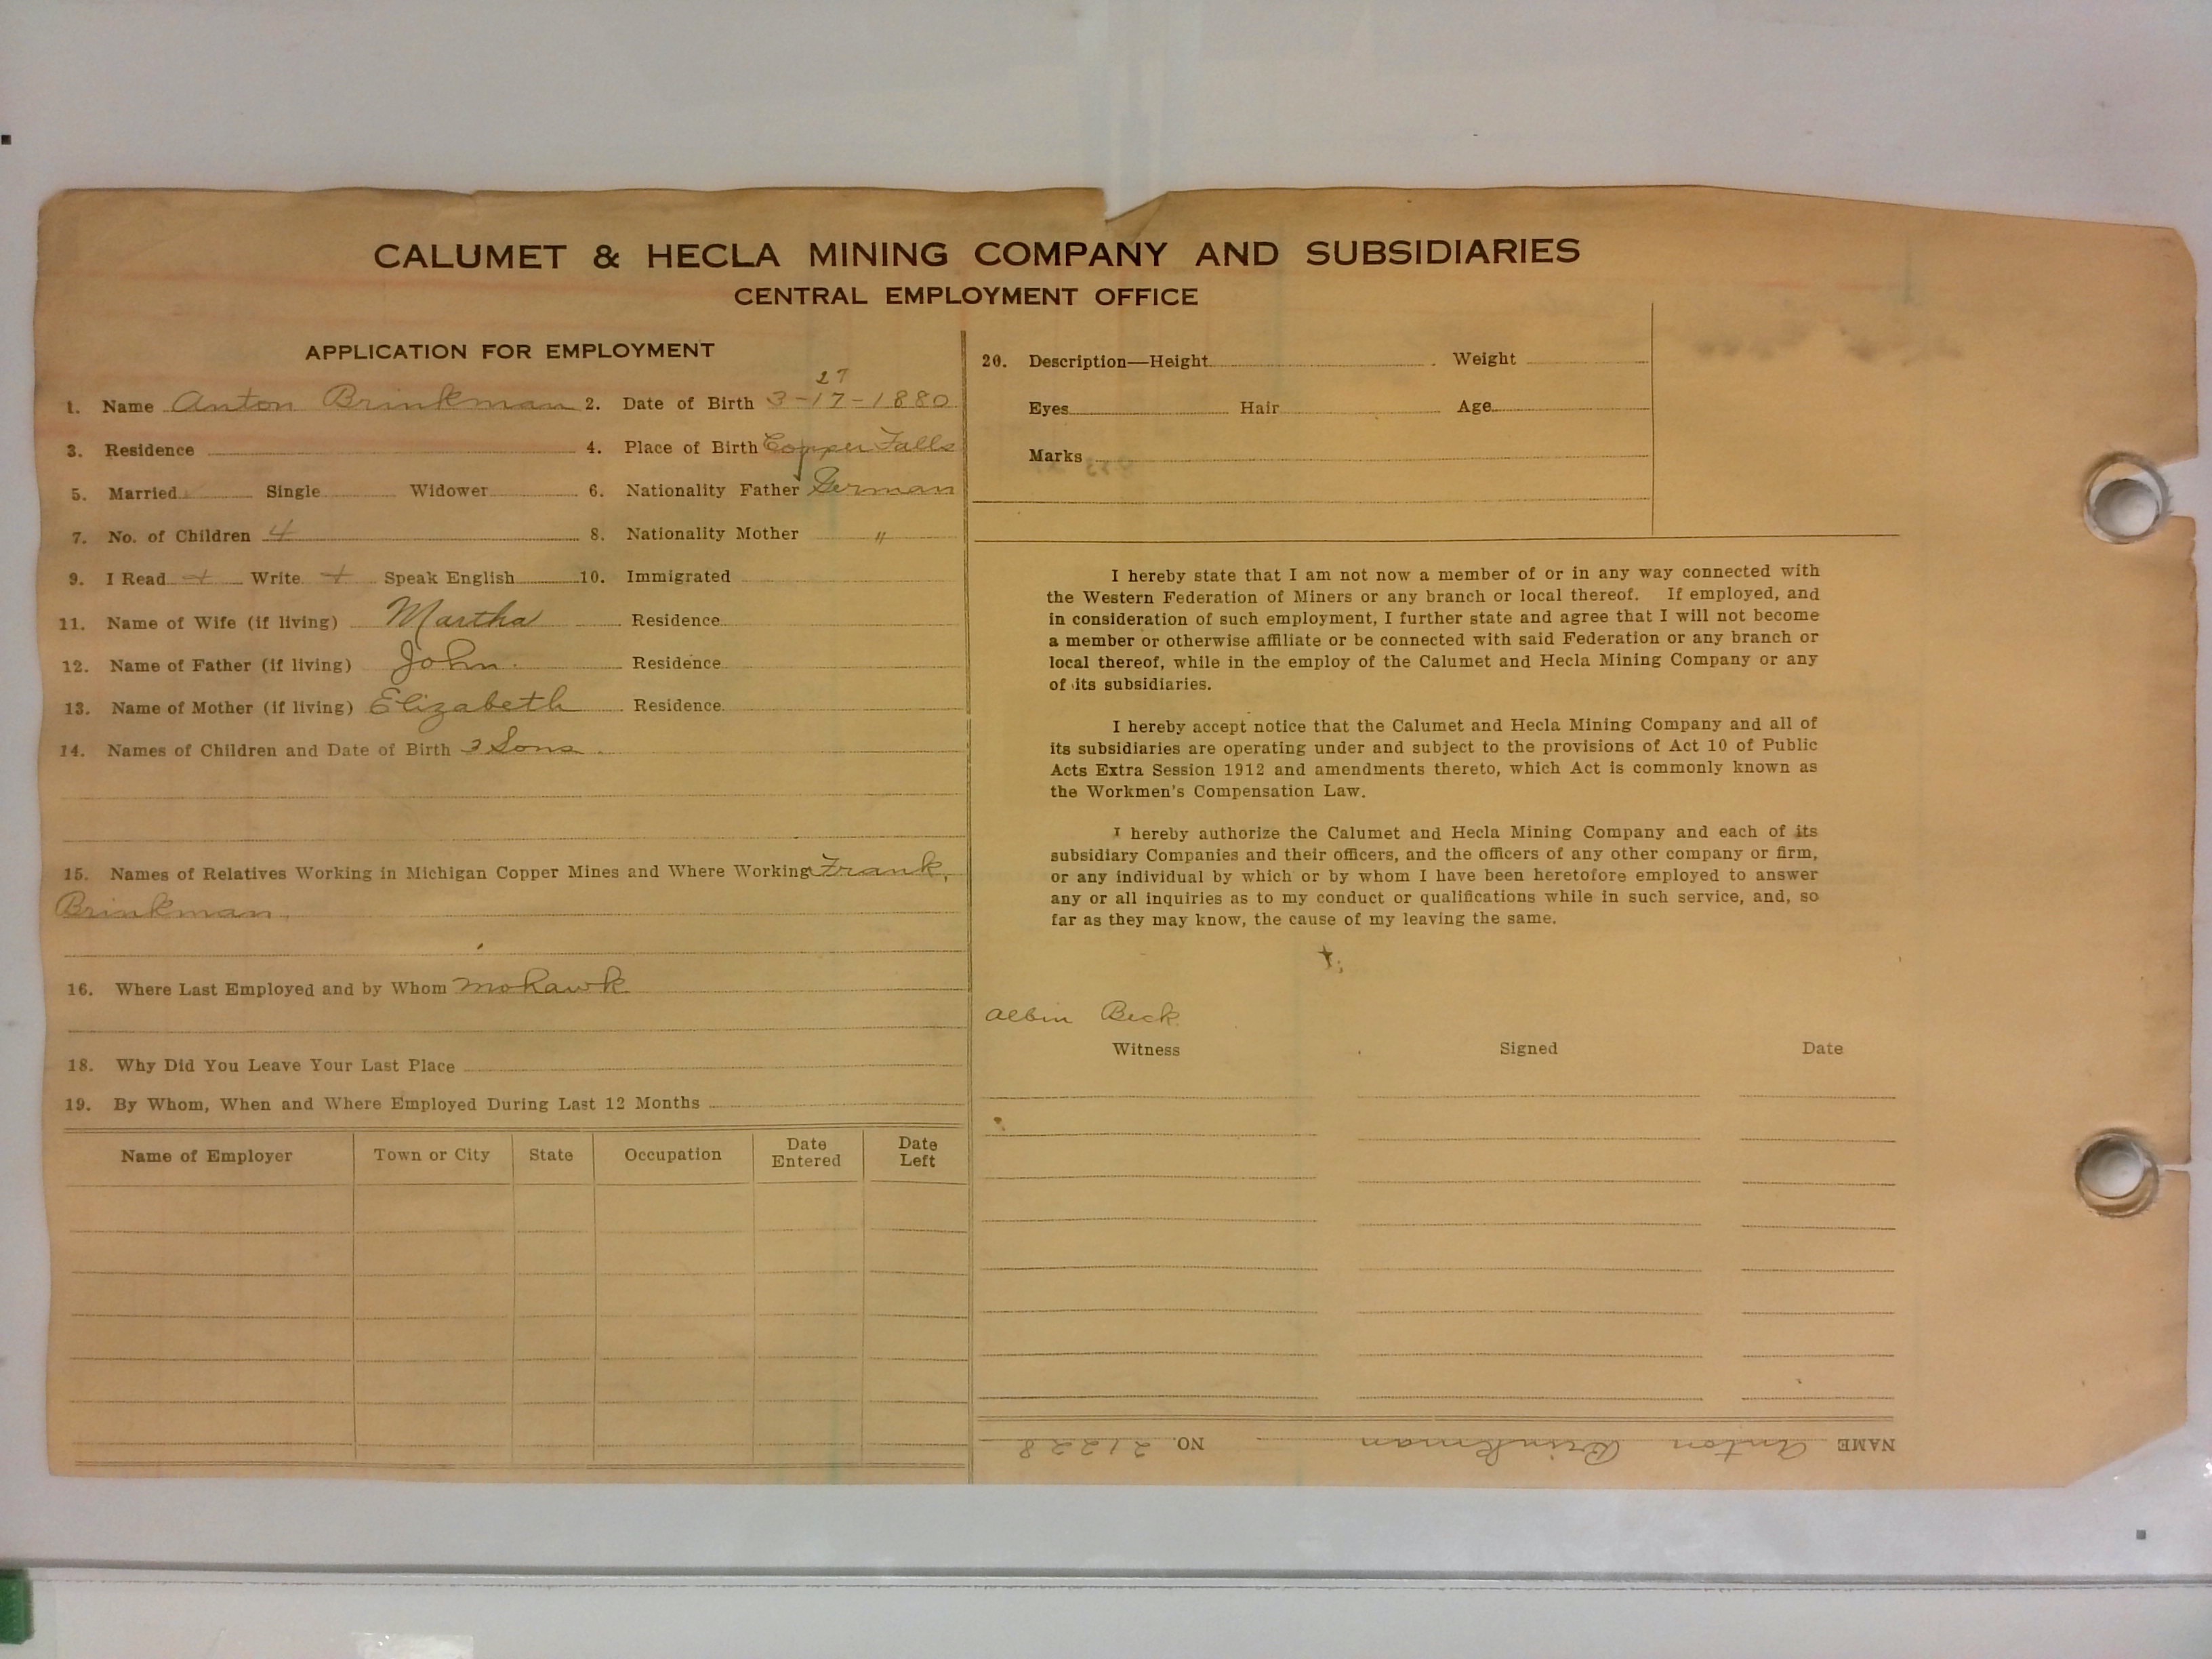 CALUMET & HECLA MINING COMPANY AND SUBSIDIARIES
CENTRAL EMPLOYMENT OFFICE
APPLICATION FOR EMPLOYMENT
27
1. Name Anton Brinkman 2. Date of Birth 3-17-1880
3. Residence 4. Place of Birth Copper Falls
5. Married Single Widower 6. Nationality Father German
7. No. of Children 4 8. Nationality Mother "
9. I Read + Write + Speak English 10. Immigrated
11. Name of Wife (if living) Martha Residence
12. Name of Father (if living) John. Residence
13. Name of Mother (if living) Elizabeth Residence
14. Names of Children and Date of Birth 3 Sons.
15. Names of Relatives Working in Michigan Copper Mines and Where Working Frank,
Brinkman.
16. Where Last Employed and by Whom Mohawk
18. Why Did You Leave Your Last Place
19. By Whom, When and Where Employed During Last 12 Months
Name of Employer Town or City State Occupation Date Entered Date Left
20. Description—Height Weight
Eyes Hair Age
Marks
I hereby state that I am not now a member of or in any way connected with
the Western Federation of Miners or any branch or local thereof. If employed, and
in consideration of such employment, I further state and agree that I will not become
a member or otherwise affiliate or be connected with said Federation or any branch or
local thereof, while in the employ of the Calumet and Hecla Mining Company or any
of its subsidiaries.
I hereby accept notice that the Calumet and Hecla Mining Company and all of
its subsidiaries are operating under and subject to the provisions of Act 10 of Public
Acts Extra Session 1912 and amendments thereto, which Act is commonly known as
the Workmen's Compensation Law.
I hereby authorize the Calumet and Hecla Mining Company and each of its
subsidiary Companies and their officers, and the officers of any other company or firm,
or any individual by which or by whom I have been heretofore employed to answer
any or all inquiries as to my conduct or qualifications while in such service, and, so
far as they may know, the cause of my leaving the same.
Albin Beck
Witness Signed Date
NAME Anton Brinkman NO. 21228